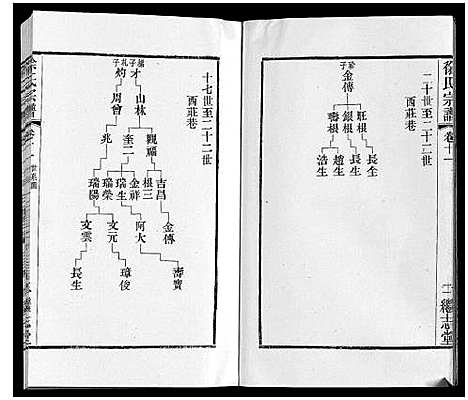 徐氏宗譜
卷十一
繼志堂
二十世至二十二世
西莊巷
金傳
旺根
銀根
壽根
長全
長生
趙生
浩生
十七世至二十二世
西莊巷
才
灼
山林
周曾
觀福
奎二
兆
吉昌
根三
金祥
瑞生
瑞榮
瑞陽
金傳
阿大
文元
文雲
壽寶
璋俊
長生